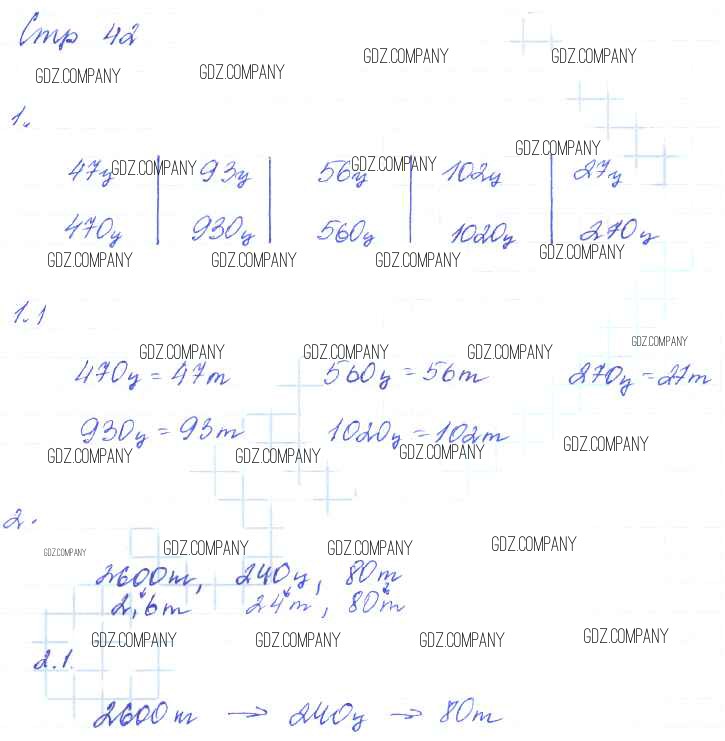 Стр 42
GDZ.COMPANY GDZ.COMPANY GDZ.COMPANY GDZ.COMPANY
1.
47ц 93ц 56ц 102ц 27ц
GDZ.COMPANY GDZ.COMPANY GDZ.COMPANY
470ц 930ц 560ц 1020ц 270ц
GDZ.COMPANY GDZ.COMPANY GDZ.COMPANY GDZ.COMPANY
1.1
GDZ.COMPANY GDZ.COMPANY GDZ.COMPANY GDZ.COMPANY
470ц = 47т 560ц = 56т 270ц = 27т
930ц = 93т 1020ц = 102т
GDZ.COMPANY GDZ.COMPANY GDZ.COMPANY GDZ.COMPANY
2.
GDZ.COMPANY GDZ.COMPANY GDZ.COMPANY GDZ.COMPANY
2600т, 240ц, 80т
2,6т 24т, 80т
GDZ.COMPANY GDZ.COMPANY GDZ.COMPANY GDZ.COMPANY
2.1.
2600т → 240ц → 80т